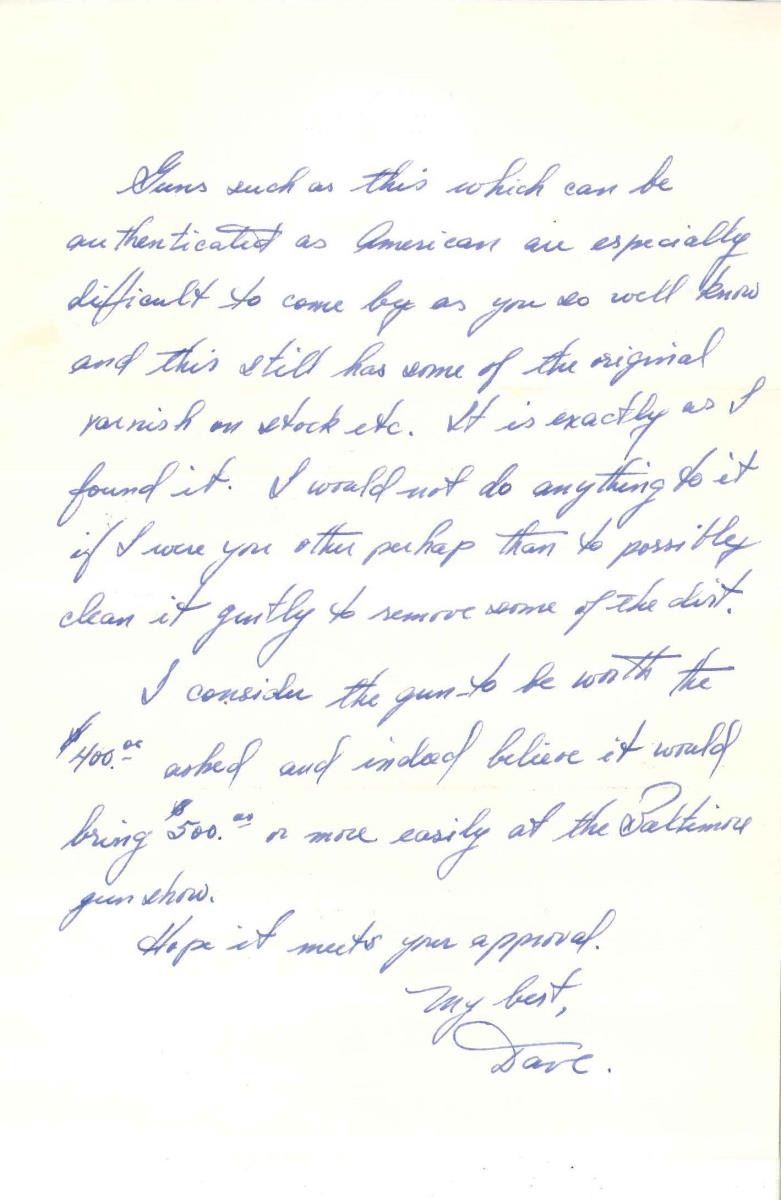 Guns such as this which can be
authenticated as American are especially
difficult to come by as you so well know
and this still has some of the original
varnish on stock etc. It is exactly as I
found it. I would not do anything to it
if I were you other perhap than to possibly
clean it gently to remove some of the dirt.
I consider the gun to be worth the
$400.00 asked and indeed believe it would
bring $500.00 or more easily at the Baltimore
gun show.
Hope it meets your approval.
My best,
Dave.